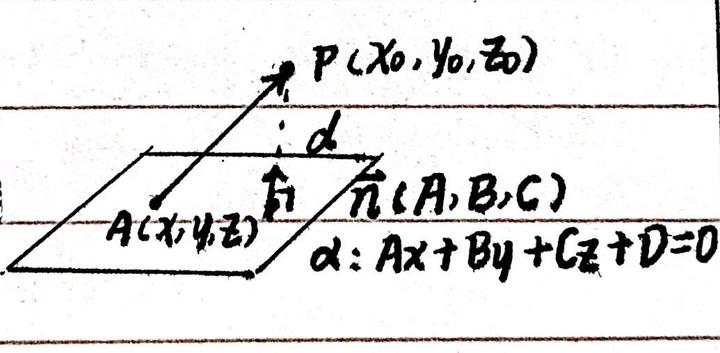 P(x₀,y₀,z₀)
d
n⃗
n⃗(A,B,C)
A(x,y,z)
α:Ax+By+Cz+D=0